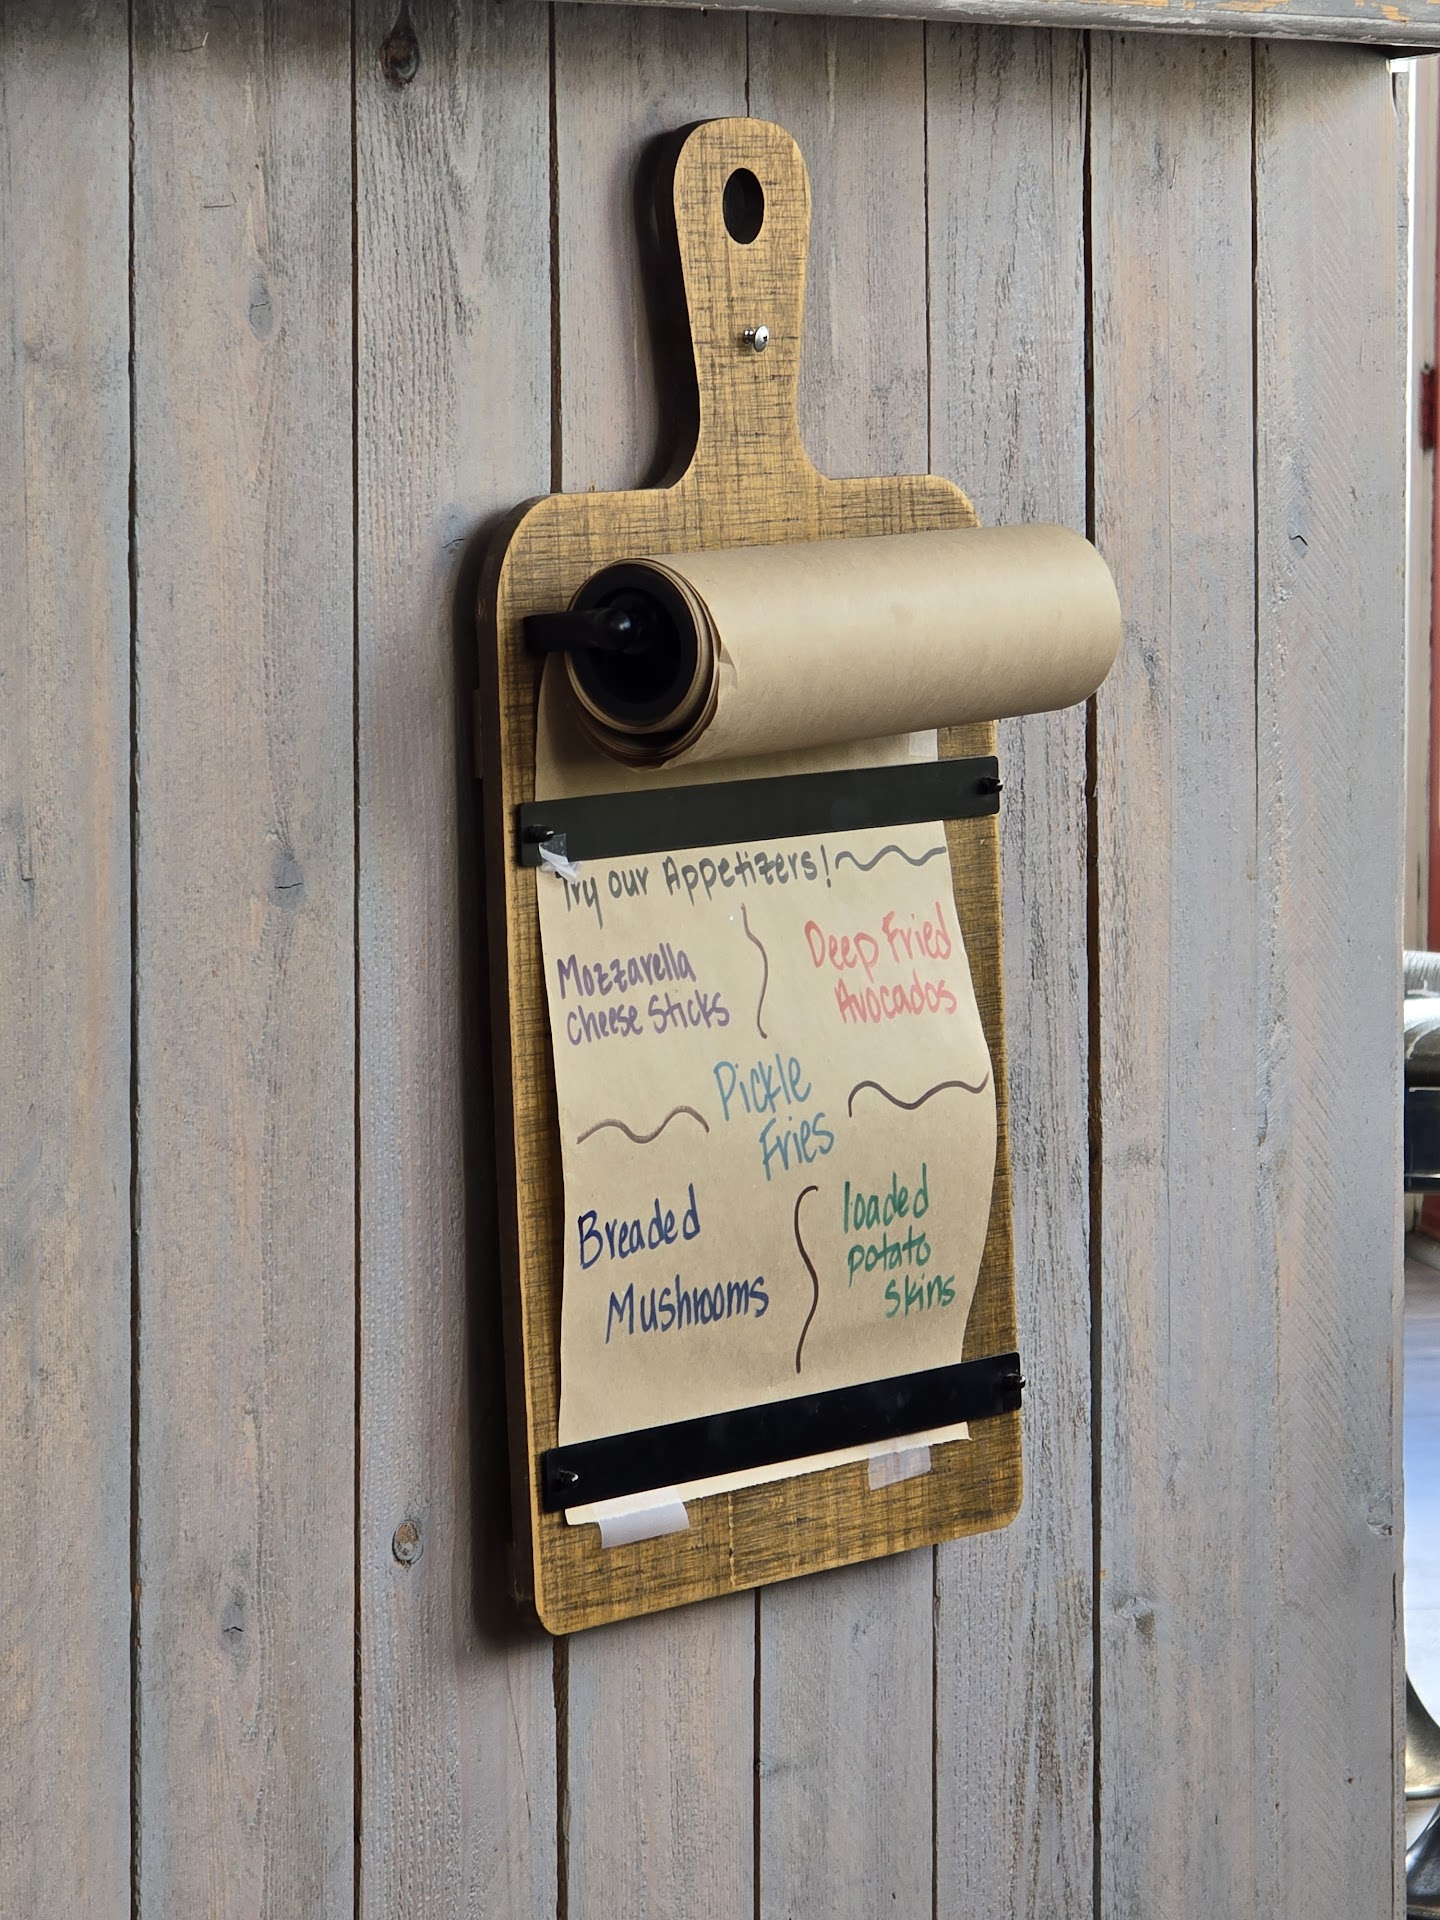 Try our Appetizers!
Mozzarella
Cheese Sticks
Deep Fried
Avocados
Pickle
Fries
Breaded
Mushrooms
loaded
potato
skins